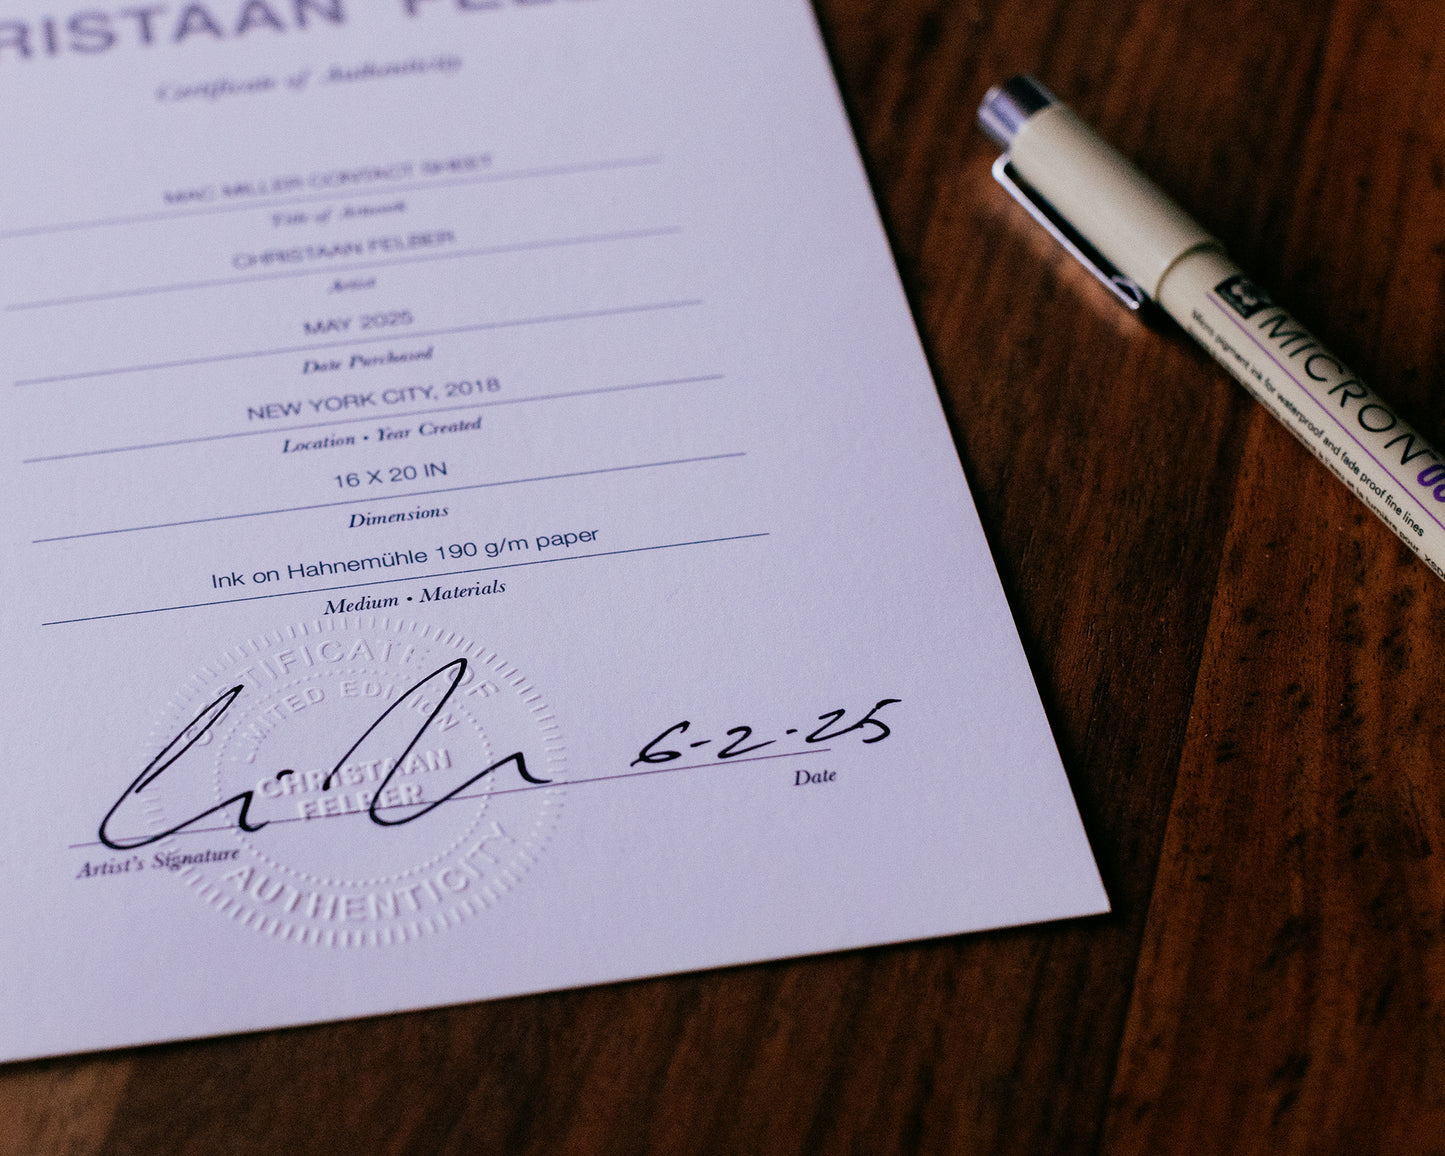 RISTAAN FELB
Certificate of Authenticity
MAC MILLER CONTACT SHEET
Title of Artwork
CHRISTAAN FELBER
Artist
MAY 2025
Date Purchased
NEW YORK CITY, 2018
Location • Year Created
16 X 20 IN
Dimensions
Ink on Hahnemühle 190 g/m paper
Medium • Materials
CERTIFICATE OF
LIMITED EDITION
CHRISTAAN
FELBER
AUTHENTICITY
6-2-25
Artist's Signature
Date
MICRON
Micro pigment ink for waterproof and fade proof fine lines